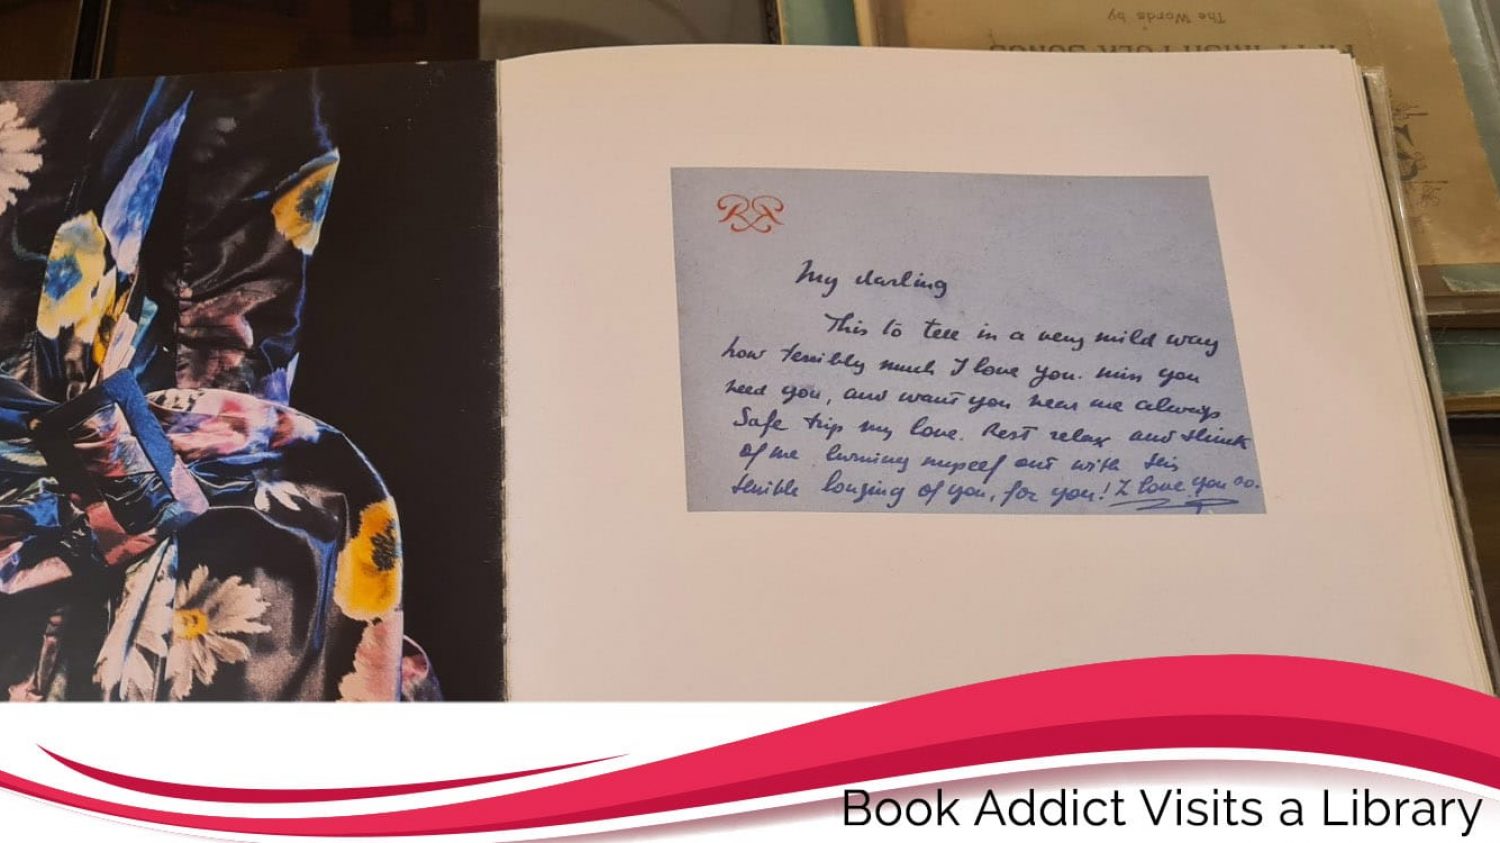 The Words by
RR
My darling
This to tell in a very mild way
how terribly much I love you. miss you
need you, and want you near me always
Safe trip my love. Rest relax and think
of me burning myself out with this
terrible longing of you, for you! I love you so.
Book Addict Visits a Library